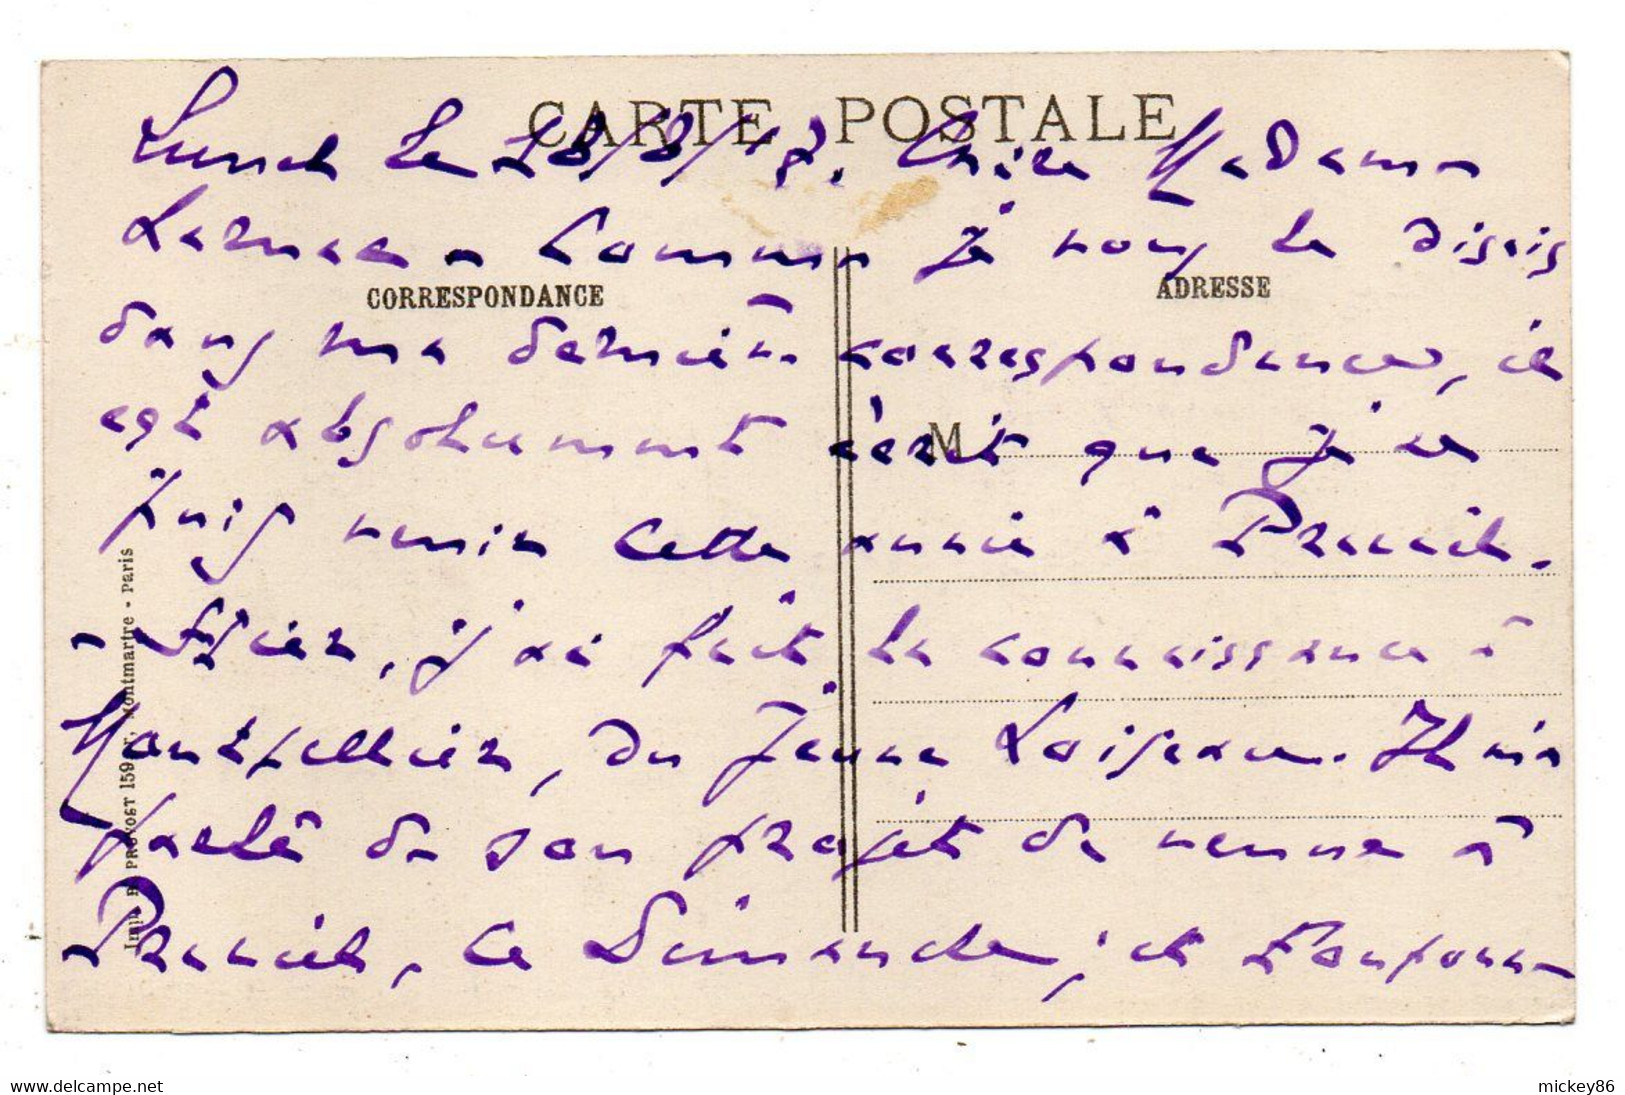 CARTE POSTALE
Lunel le 18/8/47. Chère Madame
comme je vous le disais
CORRESPONDANCE
ADRESSE
dans ma dernière correspondance, il
est absolument écrit que je ne
M
puis venir cette année à
Hier, j'ai fait la connaissance à
Montpellier, du jeune Loiseau. Il m'a
parlé de son projet de venue à
le Dimanche, et
Imp. E. PROVOST 159, Montmartre - Paris
www.delcampe.net
mickey86